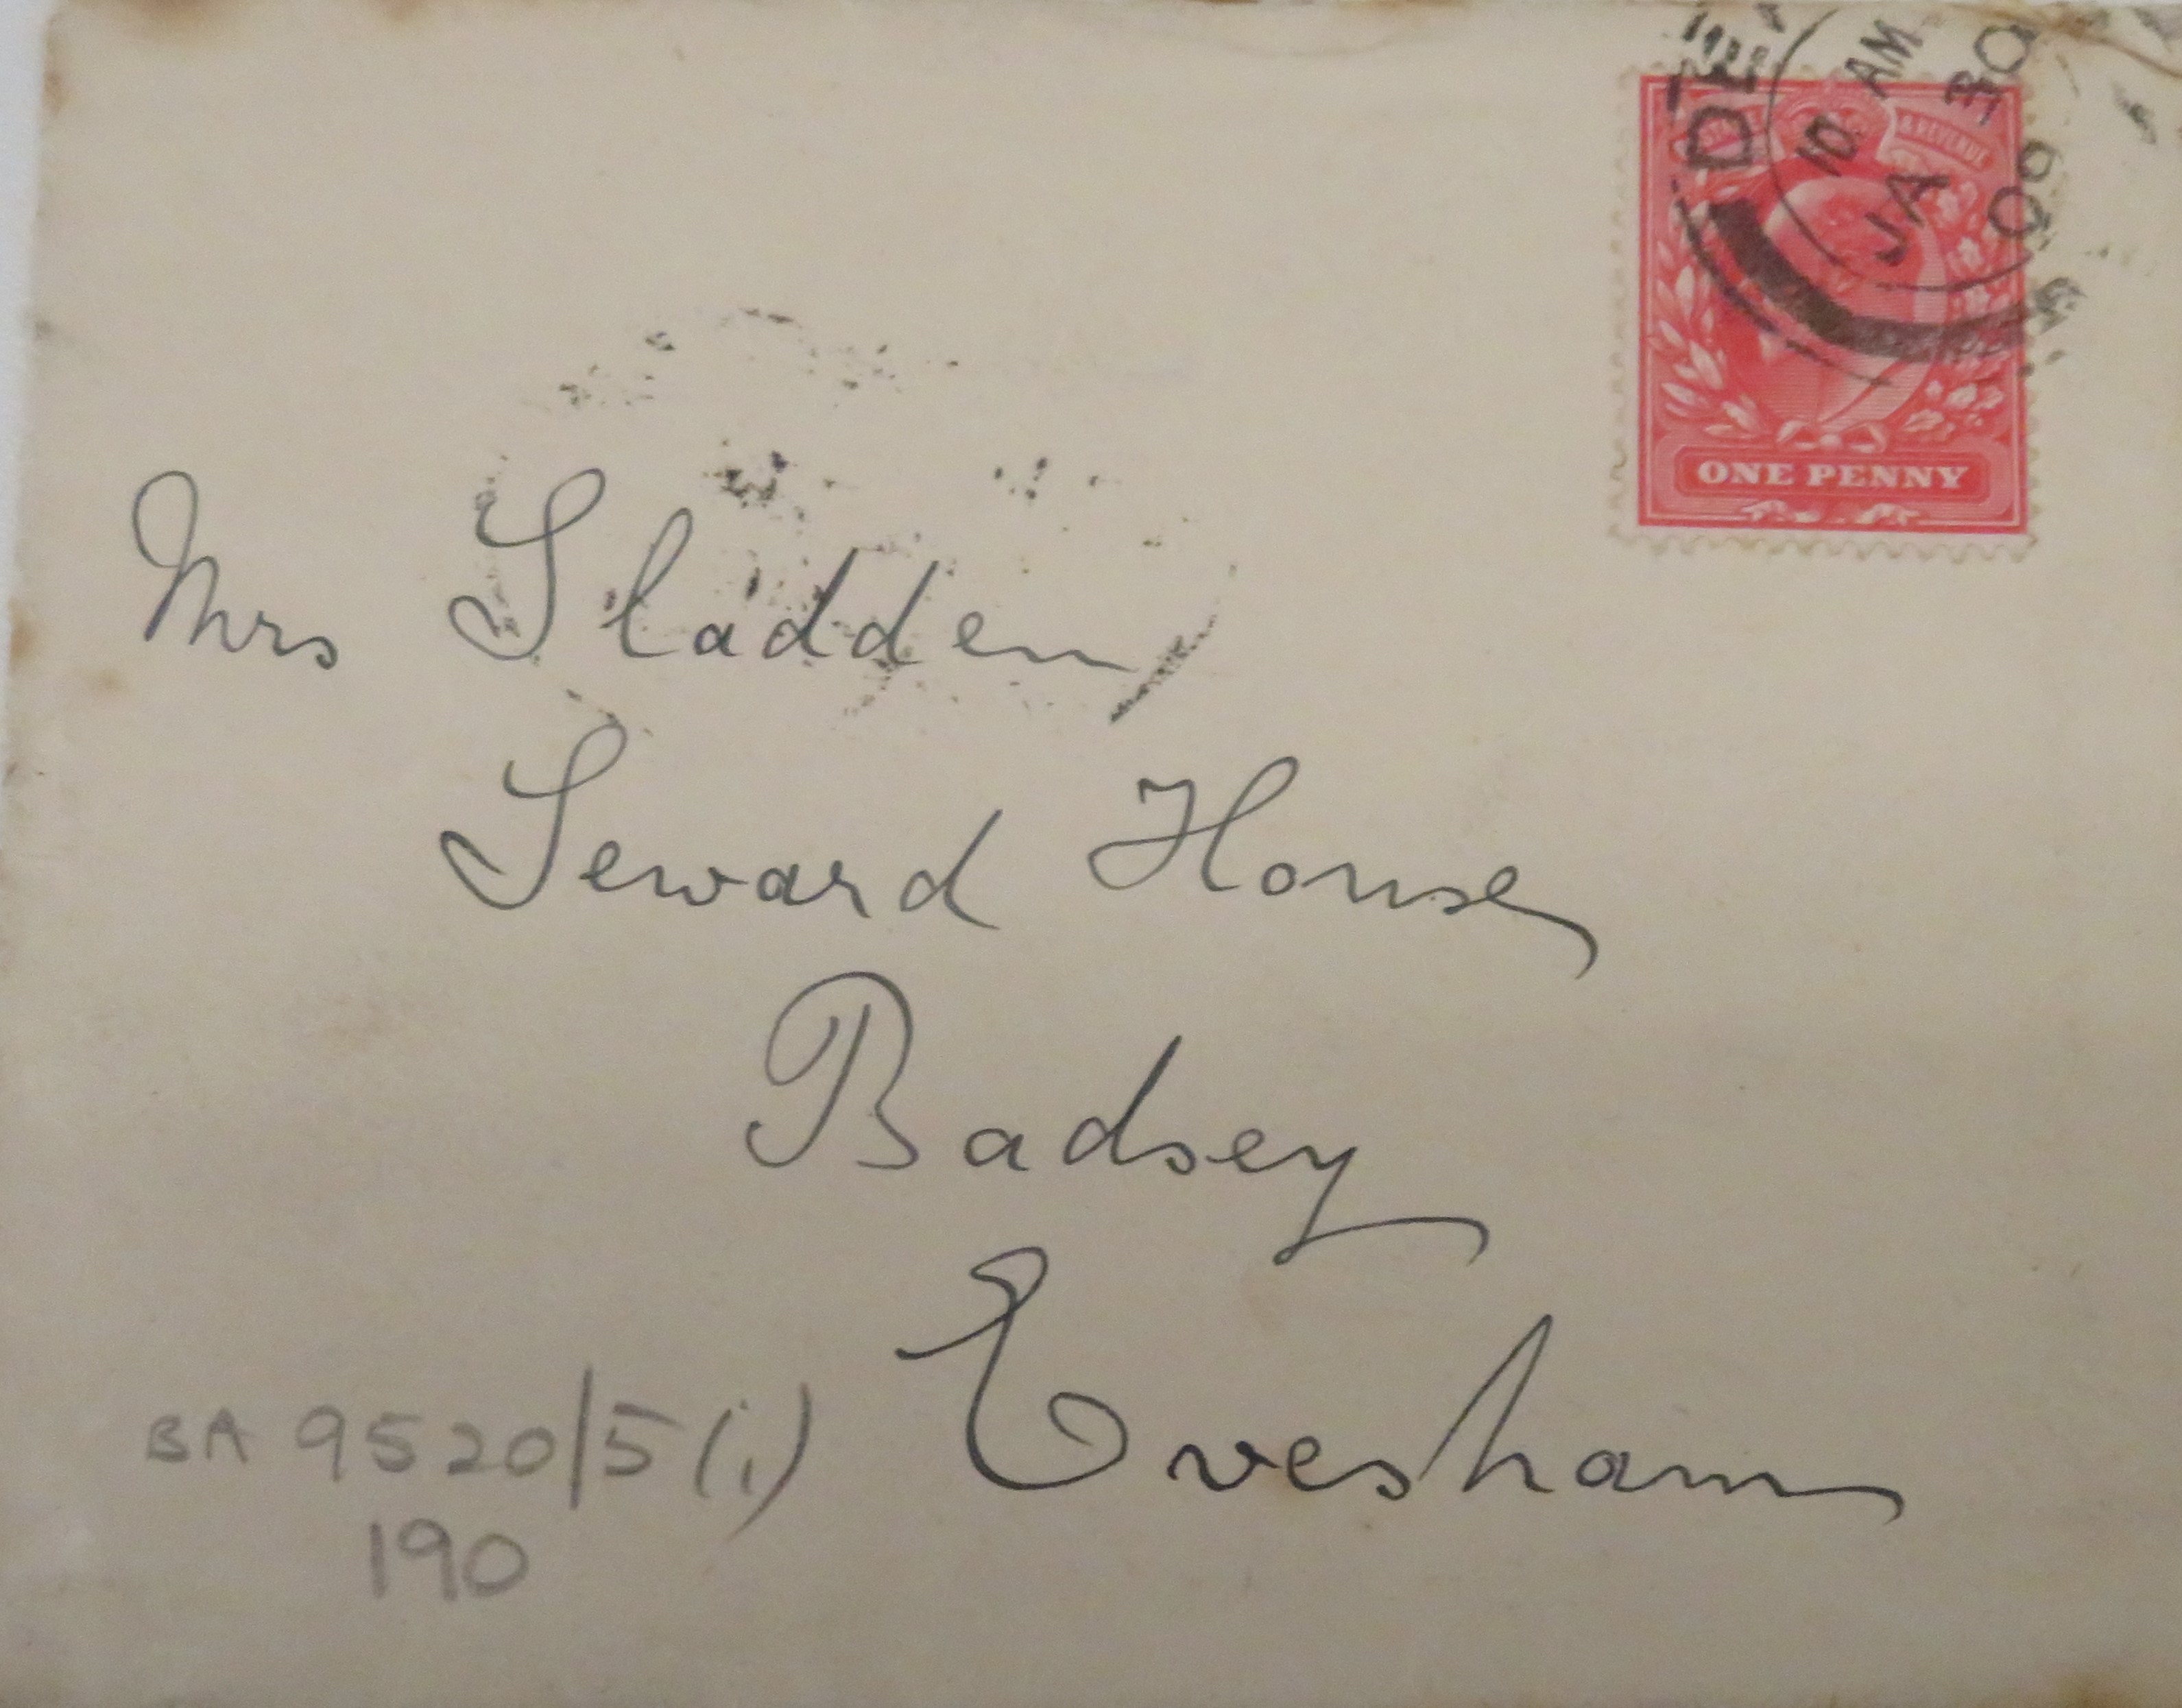 DE
10 AM
JA 30
09
& REVENUE
ONE PENNY
Mrs Sladden
Seward House
Badsey
Evesham
BA 9520/5(i)
190